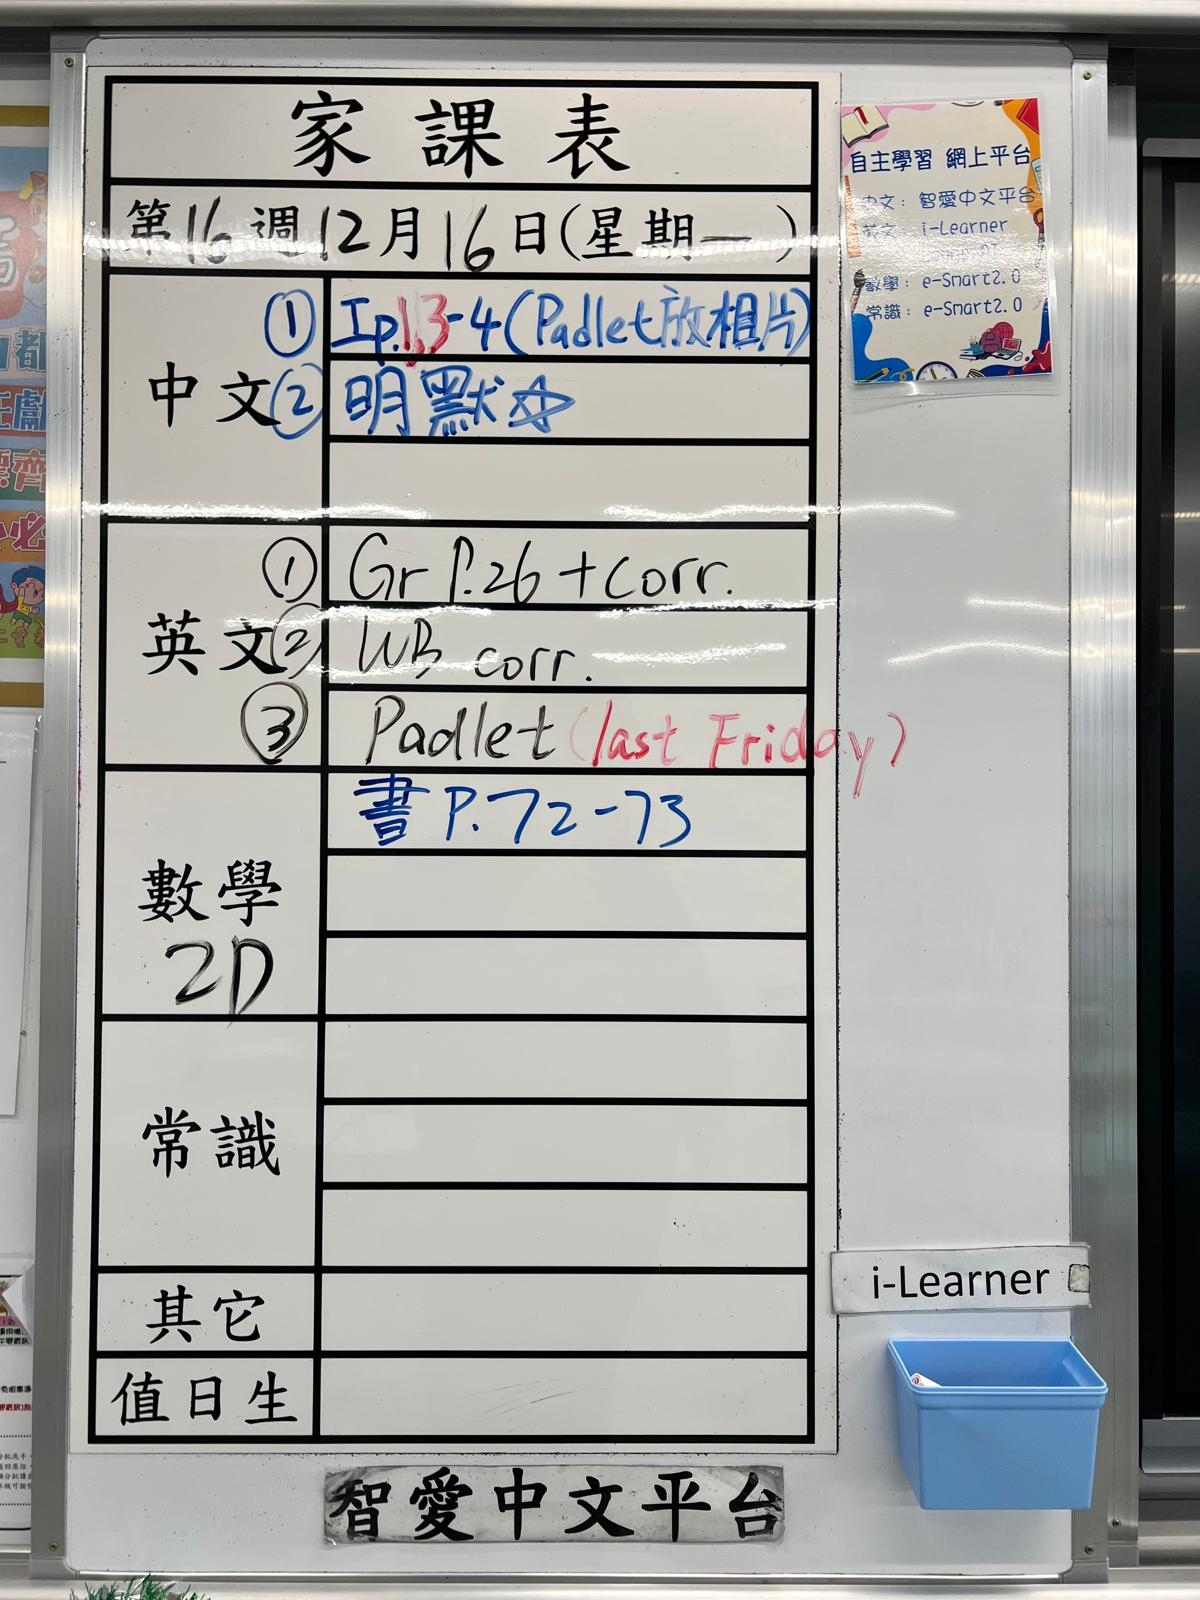 家課表
第16週12月16日(星期一)
中文
① Ip.13-4(Padlet放相片)
② 明默☆
英文
① Gr P.26 + corr.
② WB corr.
③ Padlet (last Friday)
數學
2D
書 P.72-73
常識
其它
值日生
智愛中文平台
自主學習 網上平台
中文: 智愛中文平台
英文: i-Learner
數學: e-Smart2.0
常識: e-Smart2.0
i-Learner